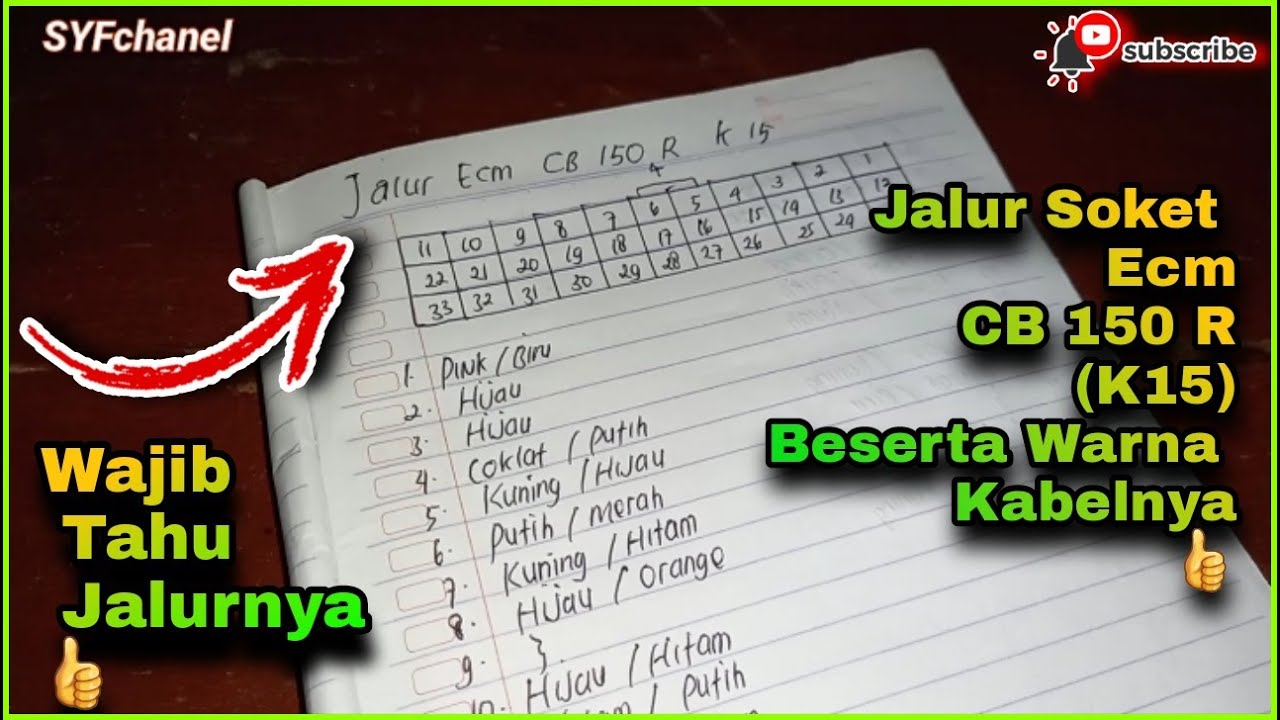 SYFchanel
subscribe
Jalur Ecm CB 150 R K 15
11 10 9 8 7 6 5 4 3 2 1
22 21 20 19 18 17 16 15 14 13 12
33 32 31 30 29 28 27 26 25 24
1. Pink / Biru
2. Hijau
3. Hijau
4. Coklat / Putih
5. Kuning / Hijau
6. Putih / Merah
7. Kuning / Hitam
8. Hijau / Orange
9. }
10. Hijau / Hitam
/ Putih
Jalur Soket
Ecm
CB 150 R
(K15)
Beserta Warna
Kabelnya
Wajib
Tahu
Jalurnya